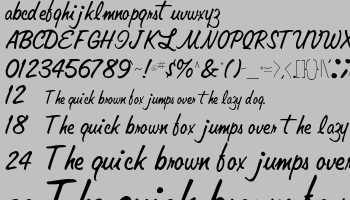 abcdefghijklmnopqrst uvwxyz
ABCDEFGHIJKLMNOPQRSTUVWX
0123456789 ~!@#$%^&*()-_+=><[]{}|\
12 The quick brown fox jumps over the lazy dog.
18 The quick brown fox jumps over the lazy
24 The quick brown fox jumps over
The quick brown fox